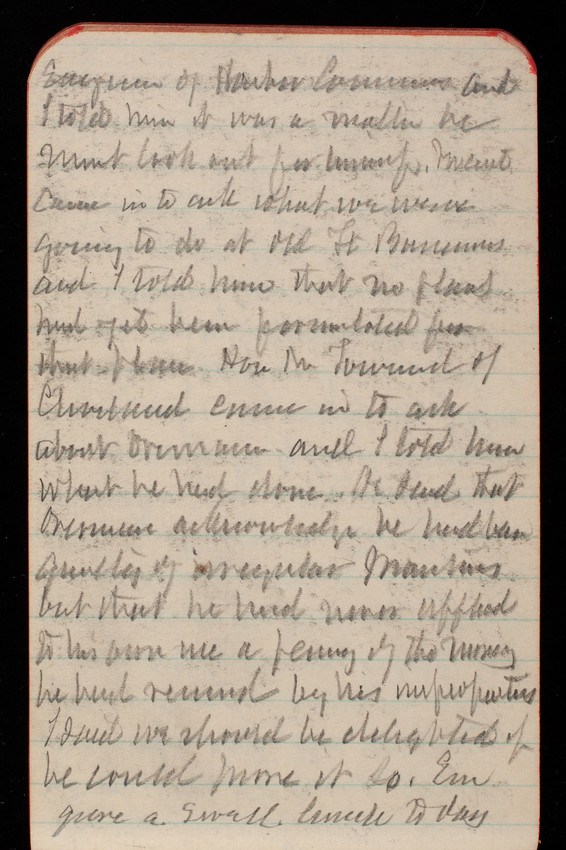 of Harbor Commerce and
I told him it was a matter he
must look out for himself.
came in to ask what we were
going to do at old Ft
and I told him that no plans
had yet been formulated for
that place. Hon Mr Townsend of
Cleveland came in to ask
about and I told him
what he had done. He said that
acknowledge he had been
guilty of irregular
but that he had never applied
to his own use a penny of the money
he had received by his
I said we should be delighted if
he could prove it so. Em
gave a swell lunch today